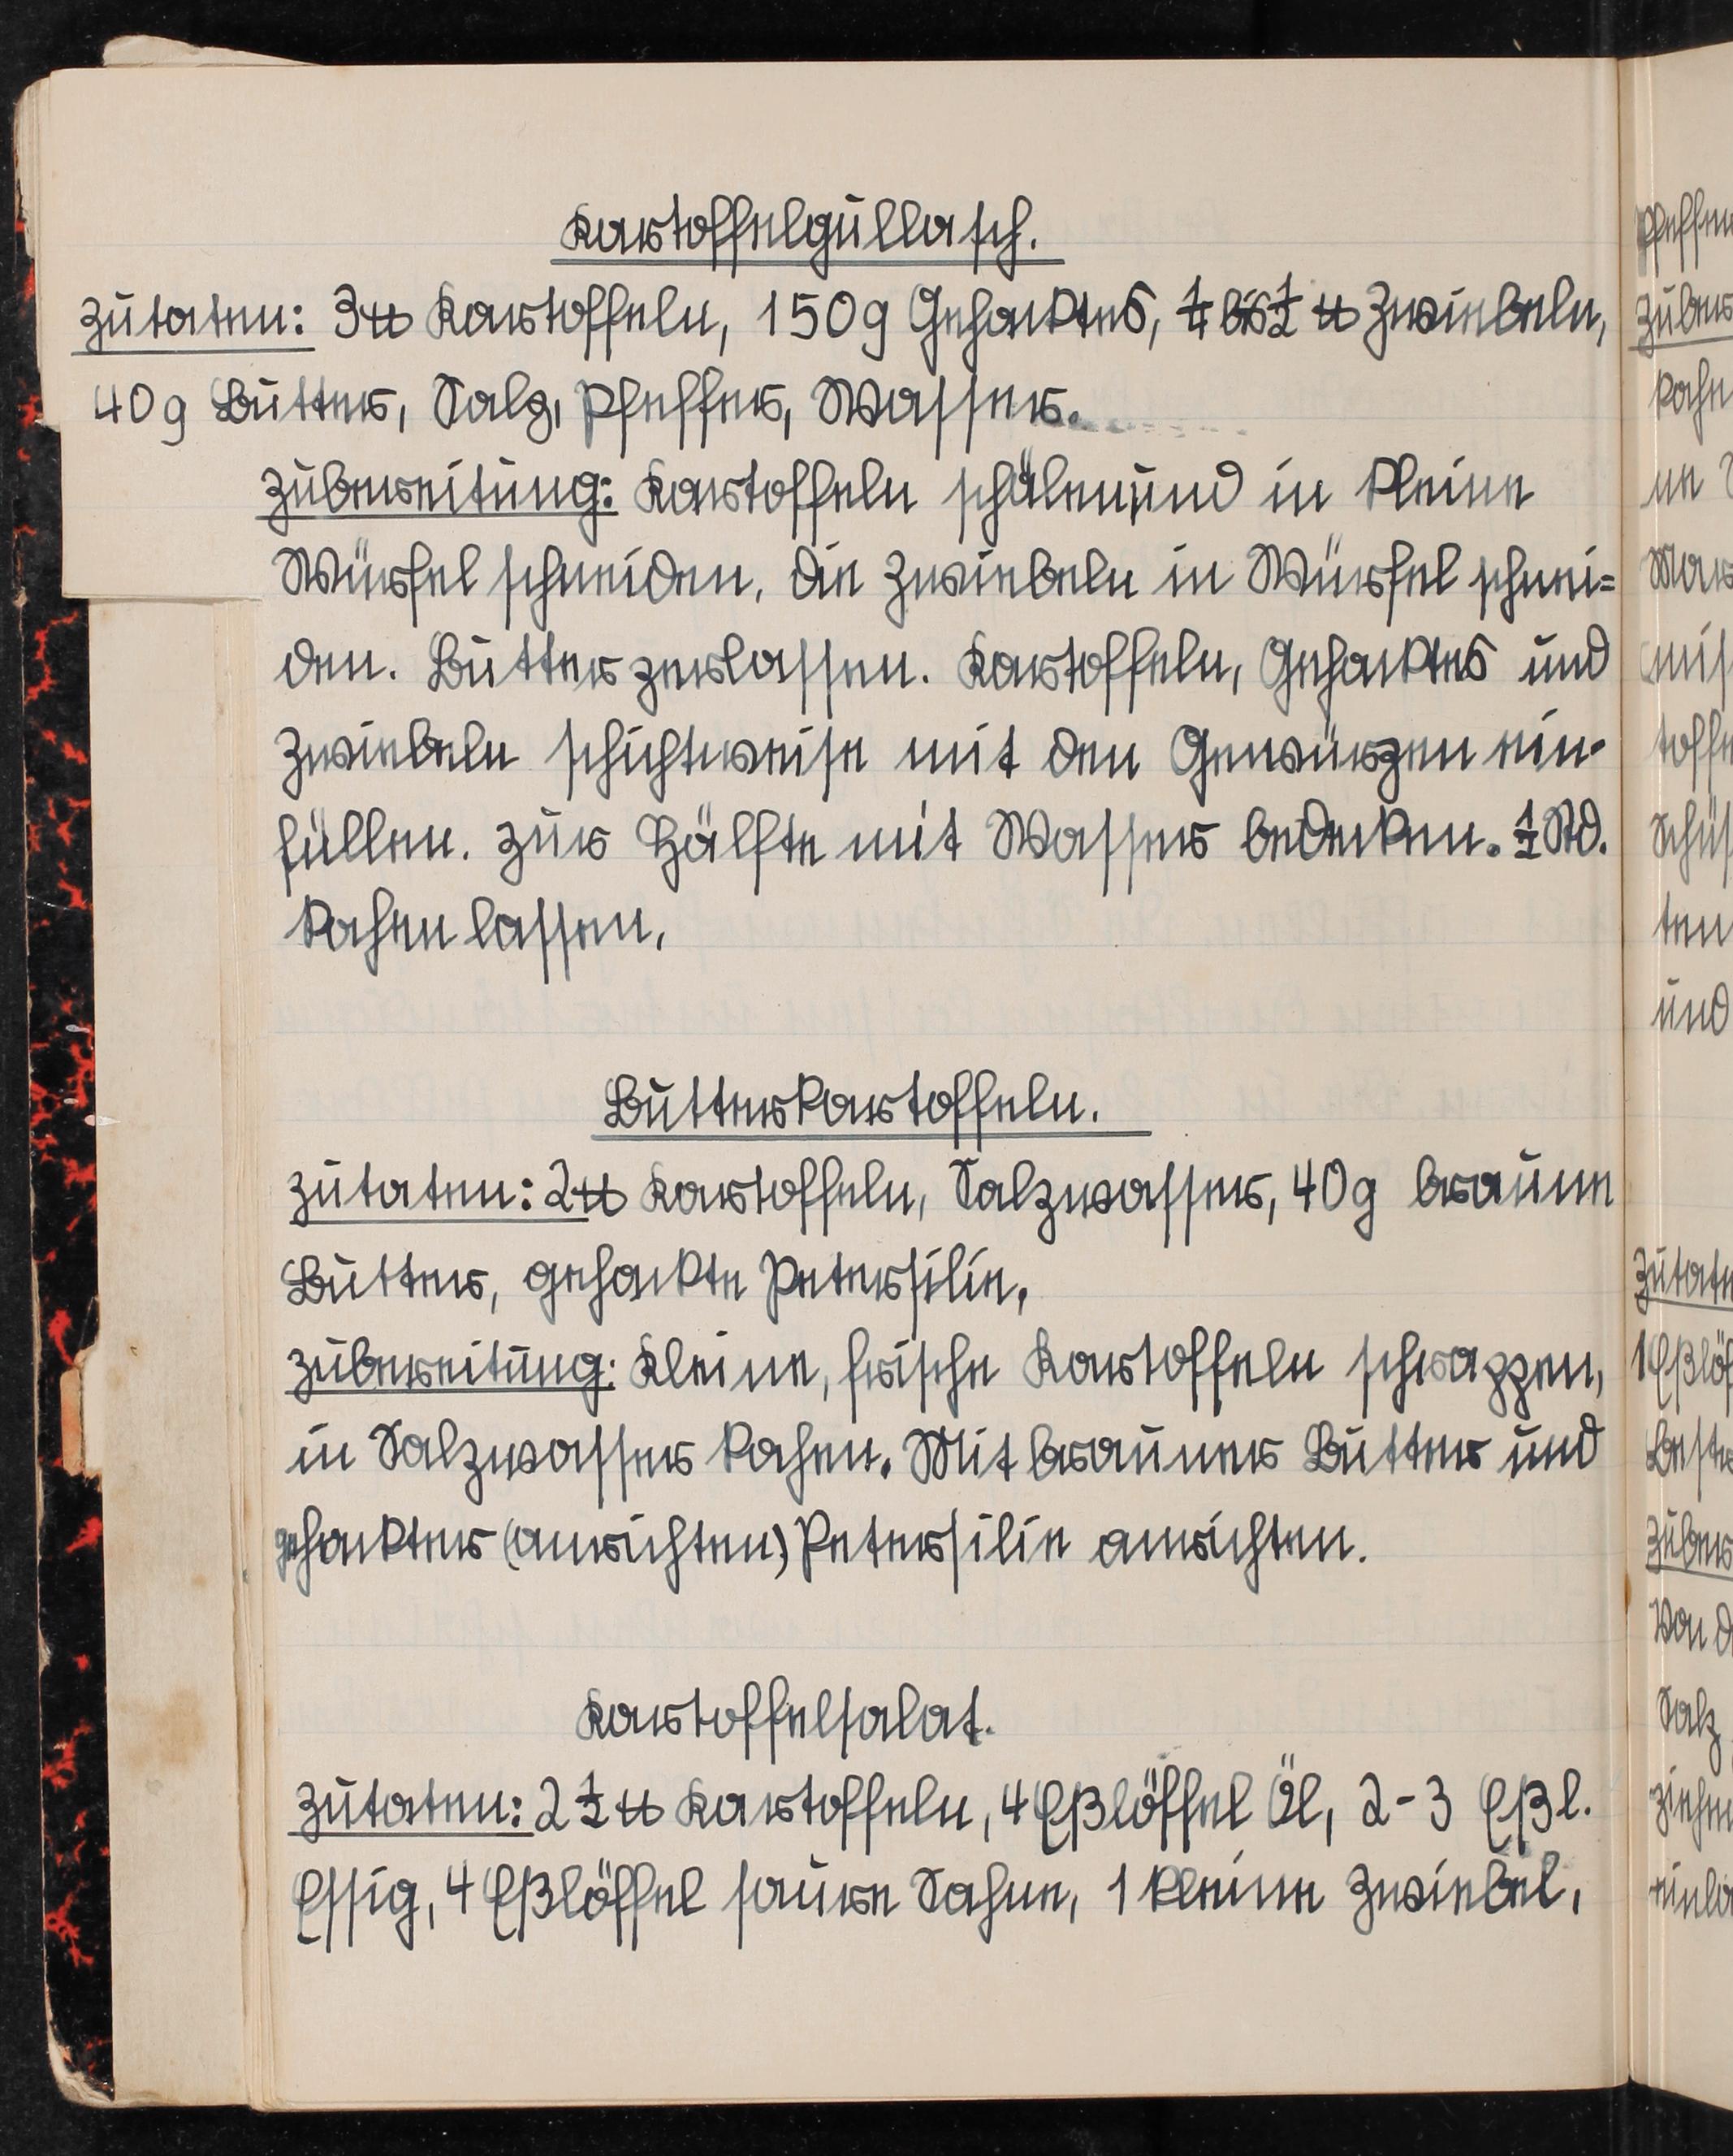 Kartoffelgullasch.
Zutaten: 3 ℔ Kartoffeln, 150g Gehacktes, ¼ bis ½ ℔ Zwiebeln,
40g Butter, Salz, Pfeffer, Wasser.
Zubereitung: Kartoffeln schälen und in kleine
Würfel schneiden, die Zwiebeln in Würfel schnei=
den. Butter zerlassen. Kartoffeln, Gehacktes und
Zwiebeln schichtweise mit den Gewürzen ein-
füllen. Zur Hälfte mit Wasser bedecken. ½ Std.
kochen lassen.
Butterkartoffeln.
Zutaten: 2 ℔ Kartoffeln, Salzwasser, 40g braune
Butter, gehackte Petersilie.
Zubereitung: Kleine, frische Kartoffeln schrappen,
in Salzwasser kochen. Mit brauner Butter und
gehackter (anrichten) Petersilie anrichten.
Kartoffelsalat.
Zutaten: 2 ½ ℔ Kartoffeln, 4 Eßlöffel Öl, 2-3 Eßl.
Essig, 4 Eßlöffel saure Sahne, 1 kleine Zwiebel,
und